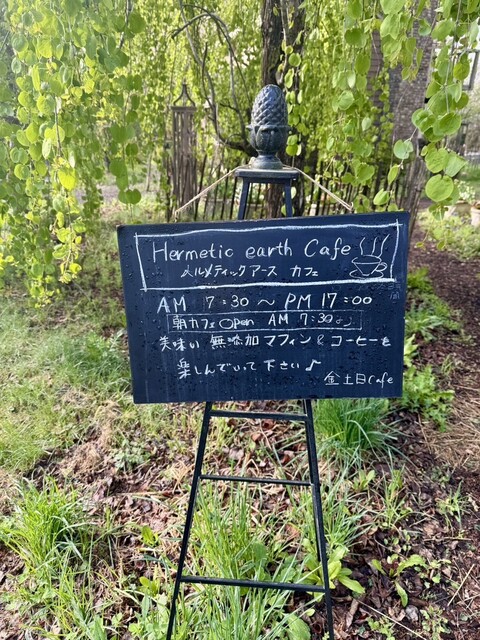 Hermetic earth Cafe
ヘルメティックアース カフェ
AM 7:30 〜 PM 17:00
朝カフェ Open AM 7:30より
美味い 無添加マフィン& コーヒーを
楽しんでいって下さい♪
金土日Cafe